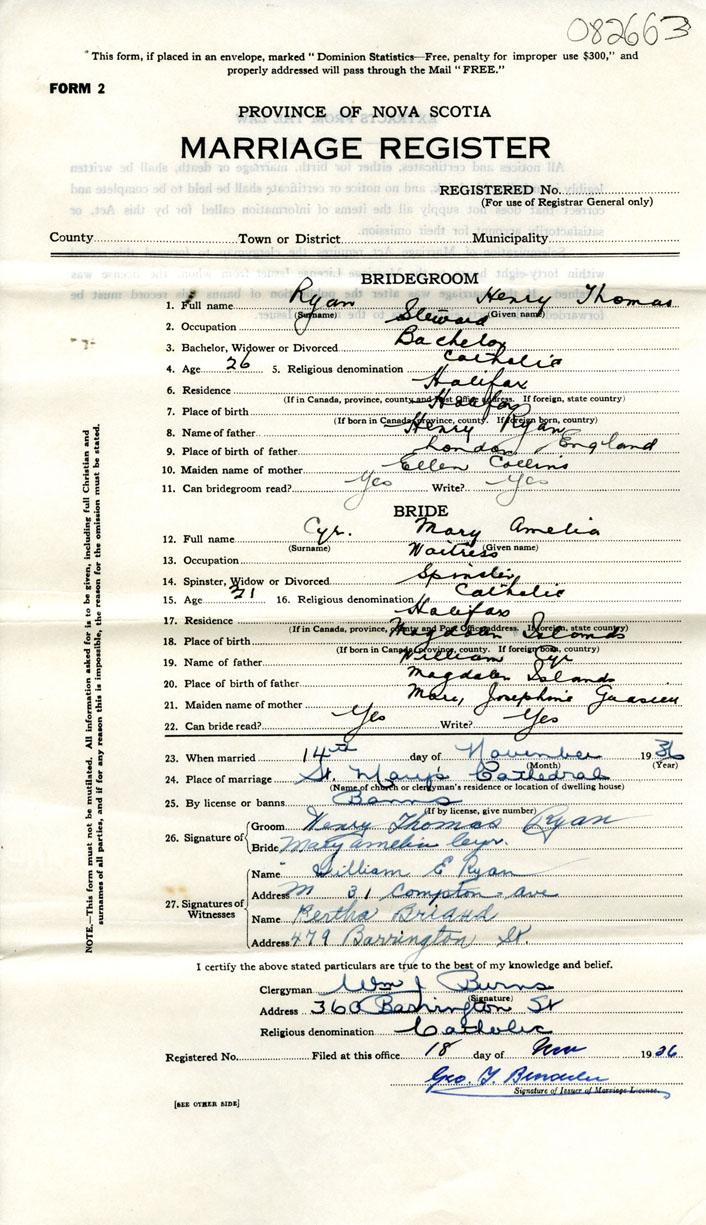 082663
"This form, if placed in an envelope, marked "Dominion Statistics—Free, penalty for improper use $300," and
properly addressed will pass through the Mail "FREE."
FORM 2
PROVINCE OF NOVA SCOTIA
MARRIAGE REGISTER
REGISTERED No.
(For use of Registrar General only)
County Town or District Municipality
BRIDEGROOM
1. Full name Ryan Henry Thomas
(Surname) (Given name)
2. Occupation Steward
3. Bachelor, Widower or Divorced Bachelor
4. Age 26 5. Religious denomination Catholic
6. Residence Halifax
(If in Canada, province, county and Post Office address. If foreign, state country)
7. Place of birth Halifax
(If born in Canada, province, county. If foreign born, country)
8. Name of father Henry Ryan
9. Place of birth of father London England
10. Maiden name of mother Ellen Collins
11. Can bridegroom read? Yes Write? Yes
BRIDE
12. Full name Cyr. Mary Amelia
(Surname) (Given name)
13. Occupation Waitress
14. Spinster, Widow or Divorced Spinster
15. Age 21 16. Religious denomination Catholic
17. Residence Halifax
(If in Canada, province, county and Post Office address. If foreign, state country)
18. Place of birth Magdalen Islands
(If born in Canada, province, county. If foreign born, country)
19. Name of father William Cyr
20. Place of birth of father Magdalen Islands
21. Maiden name of mother Mary Josephine
22. Can bride read? Yes Write? Yes
23. When married 14th day of November 1936
(Month) (Year)
24. Place of marriage St. Mary's Cathedral
(Name of church or clergyman's residence or location of dwelling house)
25. By license or banns Banns
(If by license, give number)
26. Signature of Groom Henry Thomas Ryan
Bride Mary Amelia Cyr.
27. Signatures of Witnesses Name William E Ryan
Address 31 Compton ave
Name Bertha Briand
Address 479 Barrington St.
I certify the above stated particulars are true to the best of my knowledge and belief.
Clergyman Wm J Burns
(Signature)
Address 360 Barrington St
Religious denomination Catholic
Registered No. Filed at this office 18 day of Nov 1936
Geo. T.
Signature of Issuer of Marriage License.
[SEE OTHER SIDE]
NOTE.—This form must not be mutilated. All information asked for is to be given, including full Christian and
surnames of all parties, and if for any reason this is impossible, the reason for the omission must be stated.